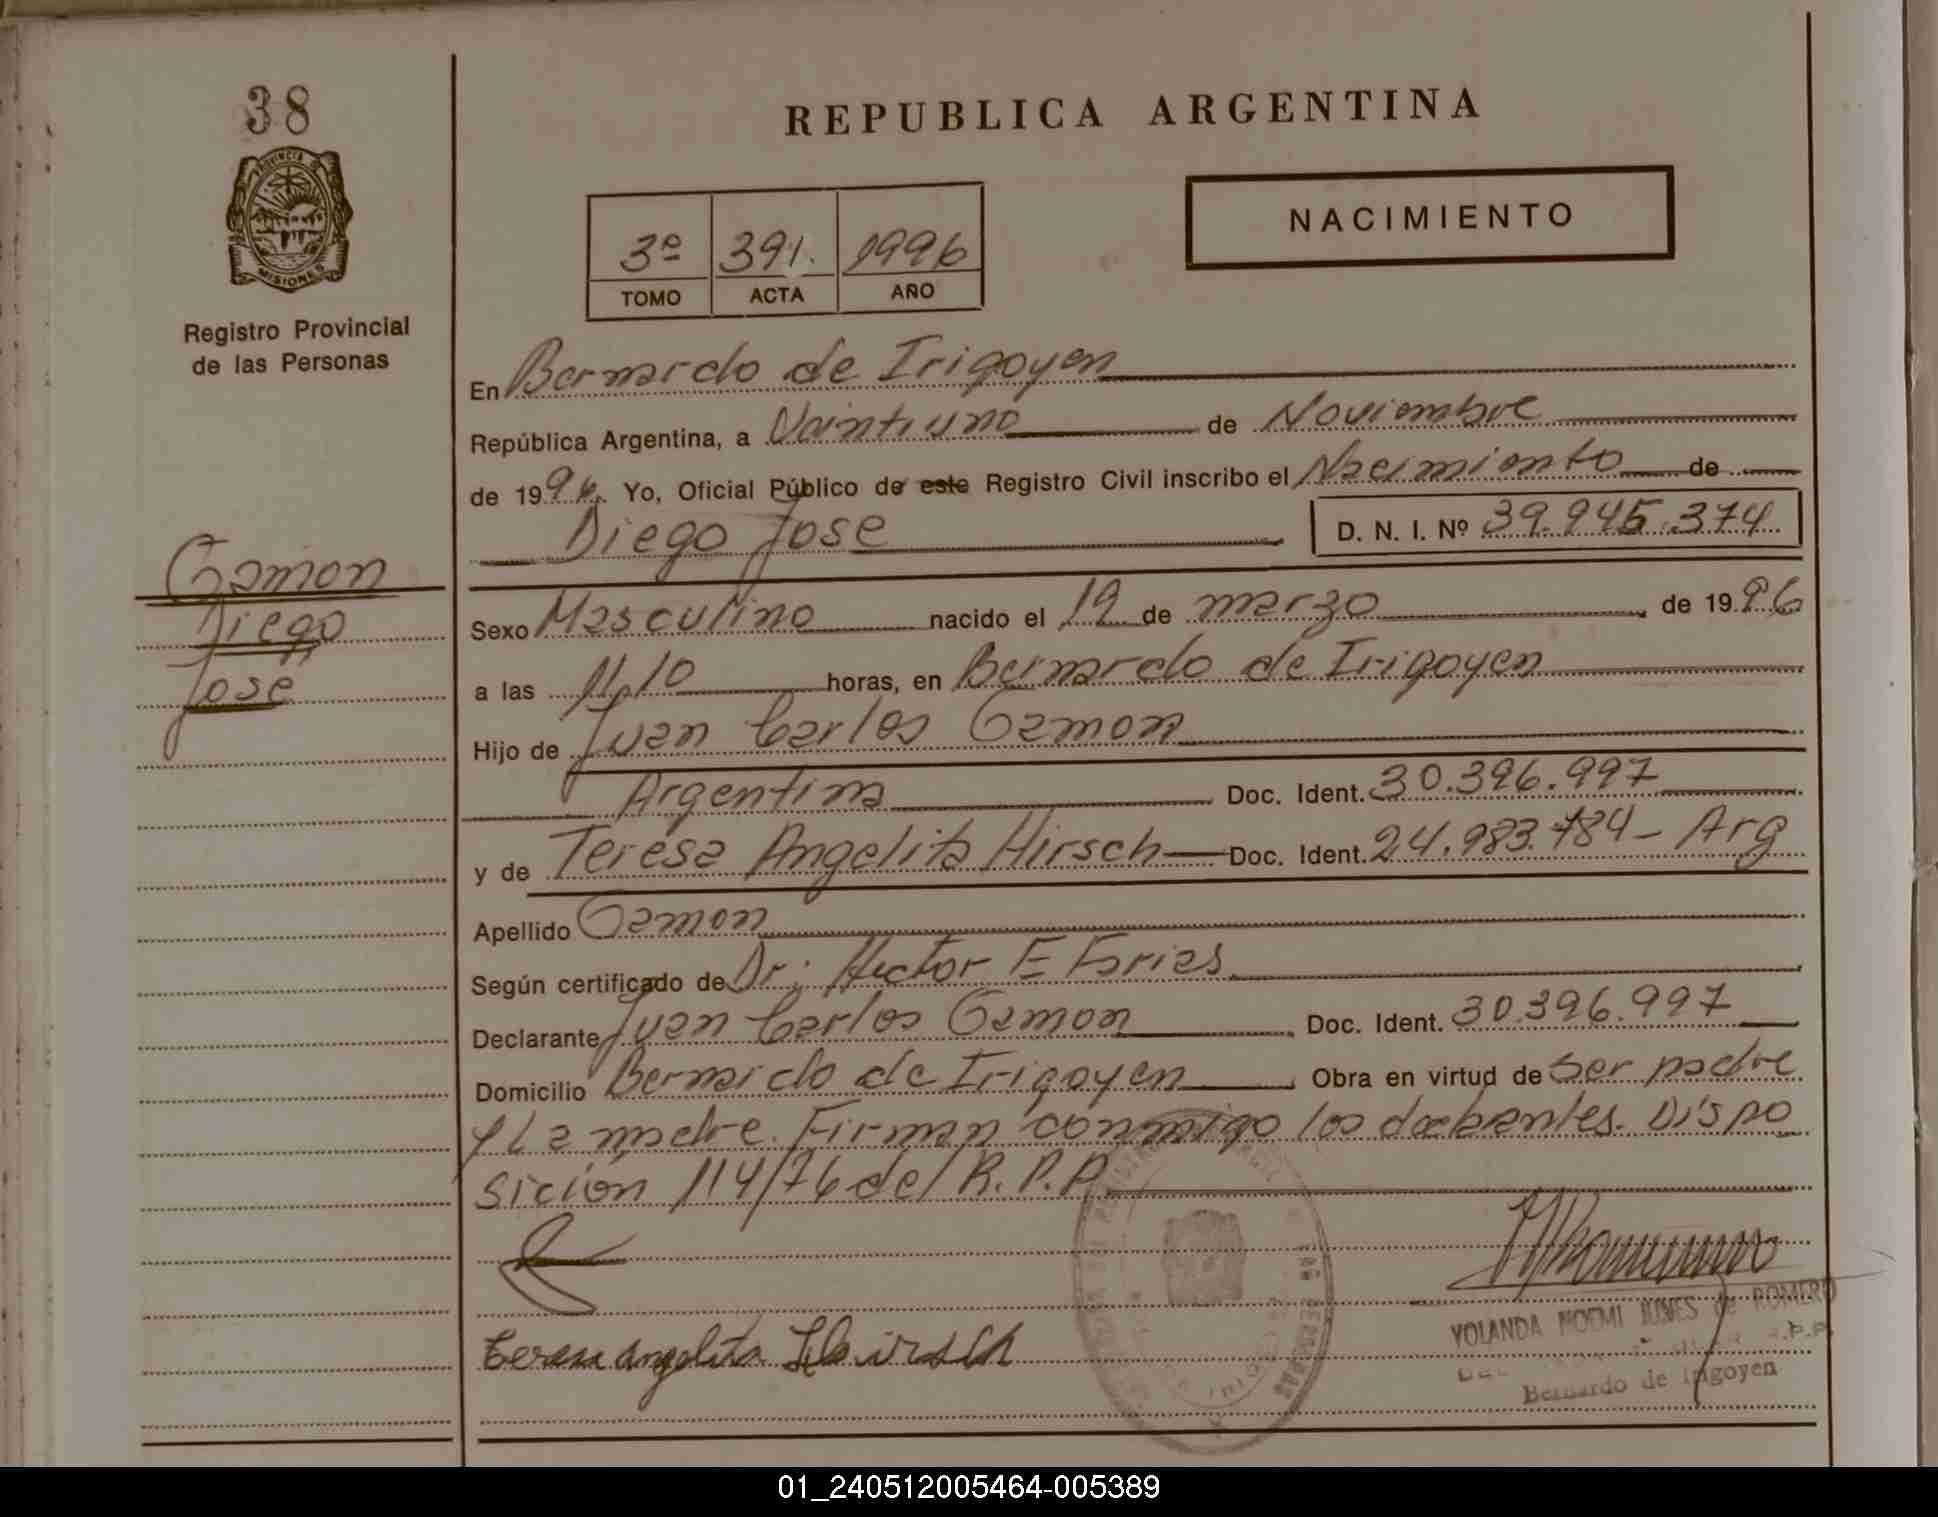 38
PROVINCIA DE
MISIONES
Registro Provincial
de las Personas
Gamon
Diego
Jose
REPUBLICA ARGENTINA
3º 391. 1996
TOMO ACTA AÑO
NACIMIENTO
En Bernardo de Irigoyen
República Argentina, a Vaintiuno de Noviembre
de 1996. Yo, Oficial Público de este Registro Civil inscribo el Nacimiento de
Diego Jose D. N. I. Nº 39.945.374
Sexo Masculino nacido el 19 de marzo de 1996
a las 11,10 horas, en Bernardo de Irigoyen
Hijo de Juan Carlos Gamon
Argentina Doc. Ident. 30.396.997
y de Teresa Angelita Hirsch Doc. Ident. 24.983.784 - Arg
Apellido Gamon
Según certificado de Dr: Hector E Farias
Declarante Juan Carlos Gamon Doc. Ident. 30.396.997
Domicilio Bernardo de Irigoyen Obra en virtud de ser padre
y La madre. Firman conmigo los decentes. Dispo
sición 114/76 del R.P.P.
teresa angelita
YOLANDA NOEMI de ROMERO
R.P.P.
Bernardo de Irigoyen
01_240512005464-005389